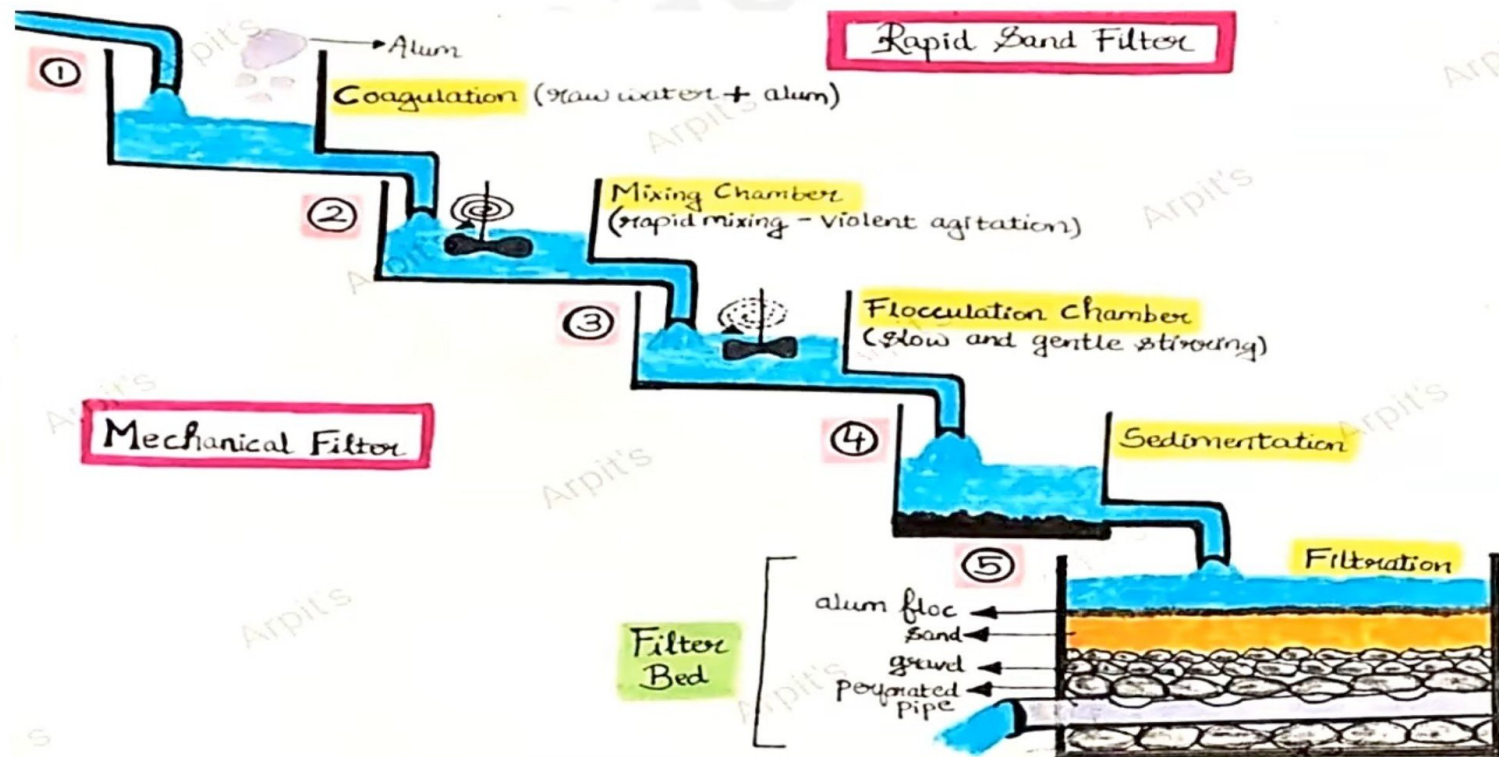 Rapid Sand Filter
①
Alum
Coagulation (raw water + alum)
②
Mixing Chamber
(rapid mixing - violent agitation)
③
Flocculation Chamber
(slow and gentle stirring)
Mechanical Filter
④
Sedimentation
⑤
Filtration
Filter
Bed
alum floc
sand
gravel
perforated
pipe
Arpit's
Arpit's
Arpit's
Arpit's
Arpit's
Arpit's
Arpit's
Arpit's
Arpit's
Arp
s